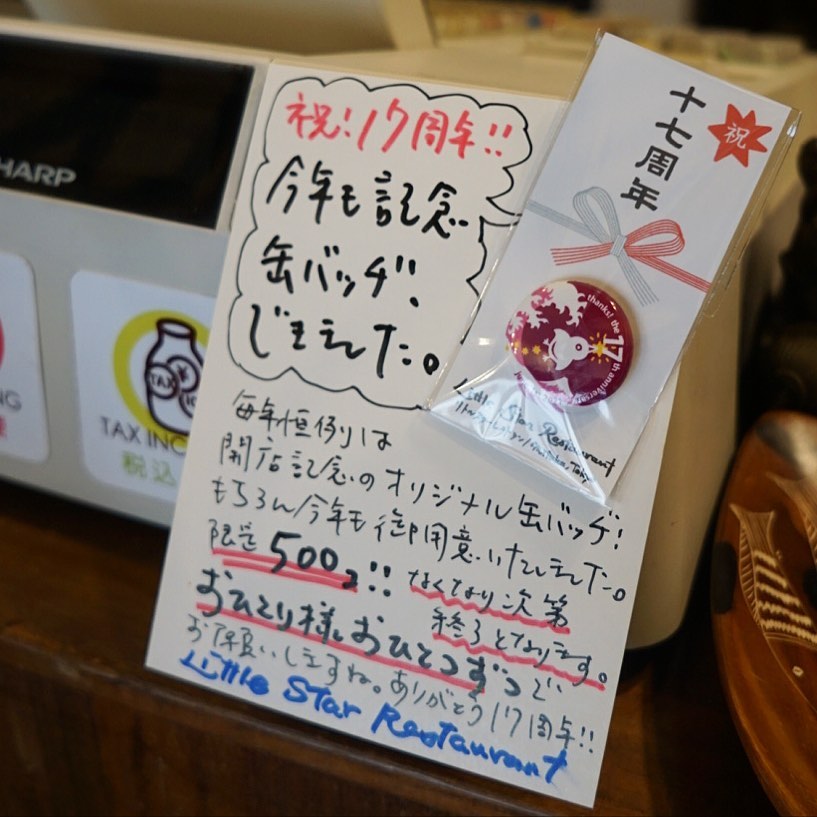 SHARP
TAX INC
税込
TAX
祝!17周年!!
今年も記念
缶バッヂ、
できました。
毎年恒例は
開店記念のオリジナル缶バッヂ!
もちろん今年も御用意いたしました。
限定500コ!! なくなり次第
終了となります。
おひとり様、おひとつずつで
お願いしますね。ありがとう17周年!!
Little Star Restaurant
祝
十七周年
thanks! the
17
th anniversary
Little Star Restaurant